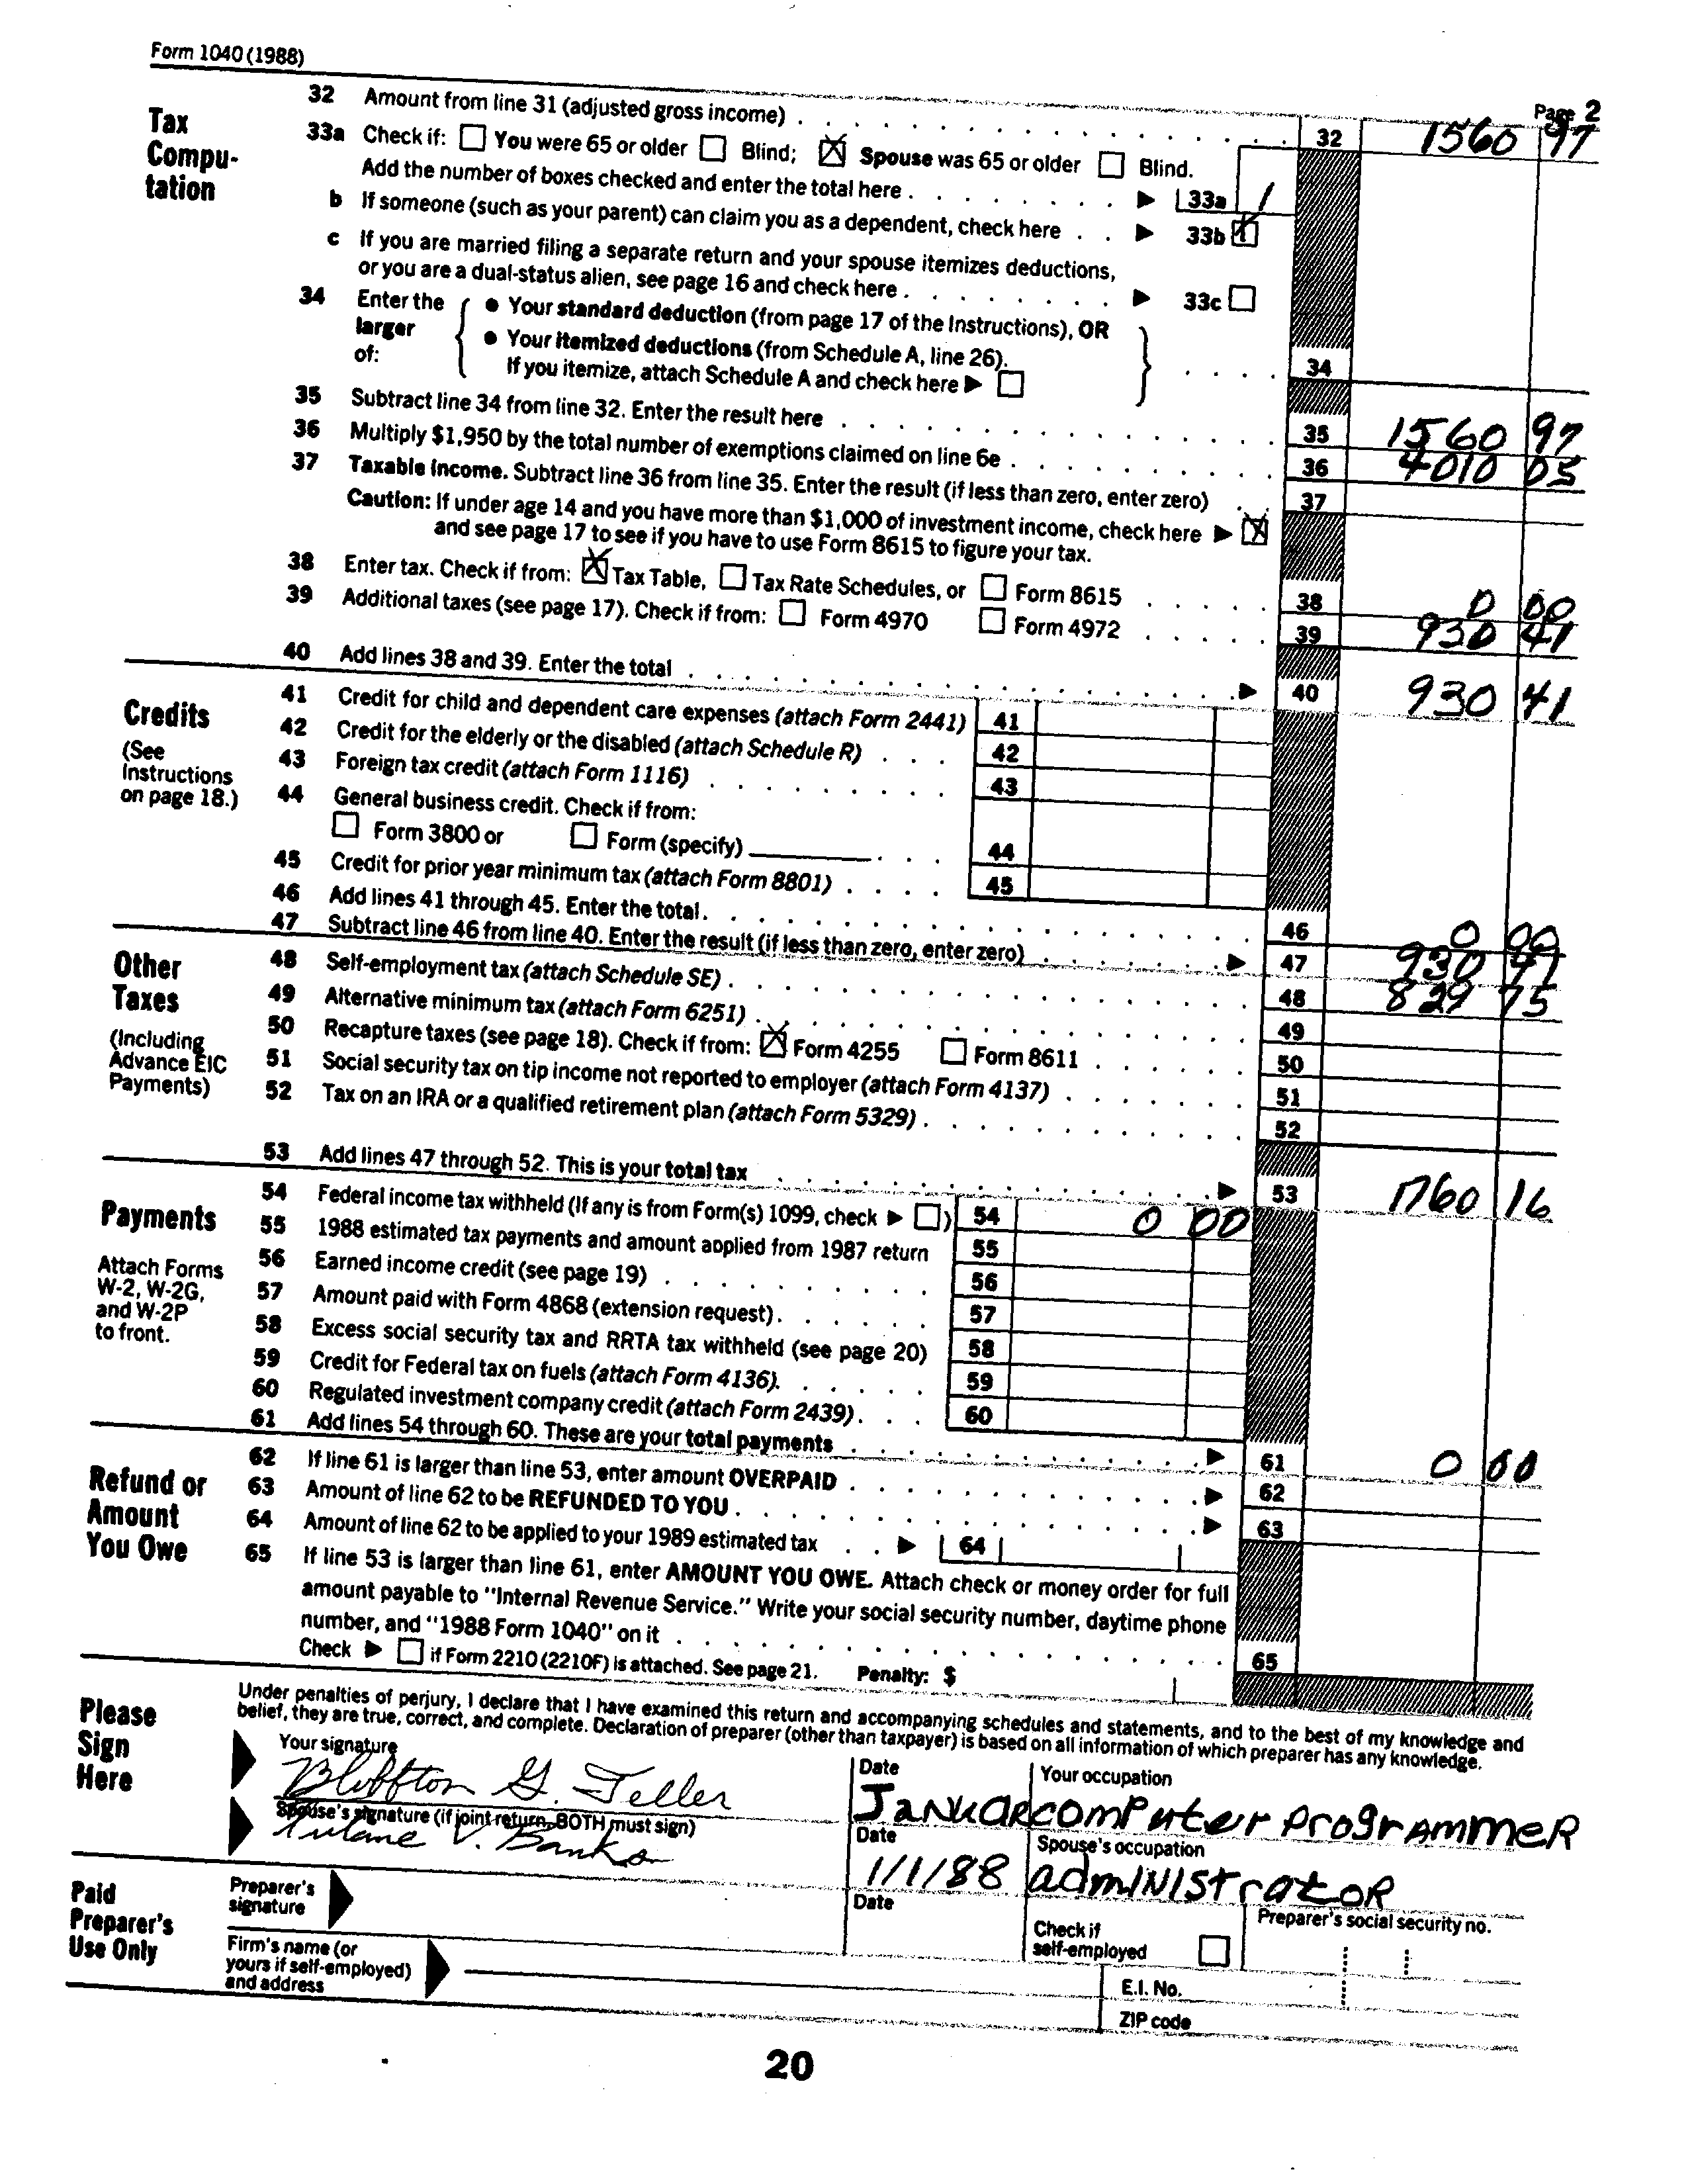 Form 1040 (1988)
Page 2
Tax Compu-tation
32 Amount from line 31 (adjusted gross income) 32 1560 97
33a Check if: You were 65 or older Blind; X Spouse was 65 or older Blind.
Add the number of boxes checked and enter the total here 33a 1
b If someone (such as your parent) can claim you as a dependent, check here 33b
c If you are married filing a separate return and your spouse itemizes deductions,
or you are a dual-status alien, see page 16 and check here 33c
34 Enter the larger of:
• Your standard deduction (from page 17 of the Instructions), OR
• Your itemized deductions (from Schedule A, line 26).
If you itemize, attach Schedule A and check here 34
35 Subtract line 34 from line 32. Enter the result here 35 1560 97
36 Multiply $1,950 by the total number of exemptions claimed on line 6e 36 4010 05
37 Taxable income. Subtract line 36 from line 35. Enter the result (if less than zero, enter zero) 37
Caution: If under age 14 and you have more than $1,000 of investment income, check here X
and see page 17 to see if you have to use Form 8615 to figure your tax.
38 Enter tax. Check if from: X Tax Table, Tax Rate Schedules, or Form 8615 38 0 00
39 Additional taxes (see page 17). Check if from: Form 4970 Form 4972 39 930 41
40 Add lines 38 and 39. Enter the total 40 930 41
Credits
(See Instructions on page 18.)
41 Credit for child and dependent care expenses (attach Form 2441) 41
42 Credit for the elderly or the disabled (attach Schedule R) 42
43 Foreign tax credit (attach Form 1116) 43
44 General business credit. Check if from:
Form 3800 or Form (specify) 44
45 Credit for prior year minimum tax (attach Form 8801) 45
46 Add lines 41 through 45. Enter the total. 46 0 00
47 Subtract line 46 from line 40. Enter the result (if less than zero, enter zero) 47 930 41
Other Taxes
(Including Advance EIC Payments)
48 Self-employment tax (attach Schedule SE) 48 829 75
49 Alternative minimum tax (attach Form 6251) 49
50 Recapture taxes (see page 18). Check if from: X Form 4255 Form 8611 50
51 Social security tax on tip income not reported to employer (attach Form 4137) 51
52 Tax on an IRA or a qualified retirement plan (attach Form 5329) 52
53 Add lines 47 through 52. This is your total tax 53 1760 16
Payments
Attach Forms W-2, W-2G, and W-2P to front.
54 Federal income tax withheld (If any is from Form(s) 1099, check ) 54 0 00
55 1988 estimated tax payments and amount applied from 1987 return 55
56 Earned income credit (see page 19) 56
57 Amount paid with Form 4868 (extension request) 57
58 Excess social security tax and RRTA tax withheld (see page 20) 58
59 Credit for Federal tax on fuels (attach Form 4136). 59
60 Regulated investment company credit (attach Form 2439) 60
61 Add lines 54 through 60. These are your total payments 61 0 00
Refund or Amount You Owe
62 If line 61 is larger than line 53, enter amount OVERPAID 62
63 Amount of line 62 to be REFUNDED TO YOU 63
64 Amount of line 62 to be applied to your 1989 estimated tax 64
65 If line 53 is larger than line 61, enter AMOUNT YOU OWE. Attach check or money order for full
amount payable to "Internal Revenue Service." Write your social security number, daytime phone
number, and "1988 Form 1040" on it 65
Check if Form 2210 (2210F) is attached. See page 21. Penalty: $
Please Sign Here
Under penalties of perjury, I declare that I have examined this return and accompanying schedules and statements, and to the best of my knowledge and
belief, they are true, correct, and complete. Declaration of preparer (other than taxpayer) is based on all information of which preparer has any knowledge.
Your signature Date Your occupation
Bluffton G. Teller Januar computer programmer
Spouse's signature (if joint return, BOTH must sign) Date Spouse's occupation
Tulane V. Banks 1/1/88 administrator
Paid Preparer's Use Only
Preparer's signature Date Check if self-employed Preparer's social security no.
Firm's name (or yours if self-employed) and address
E.I. No.
ZIP code
20